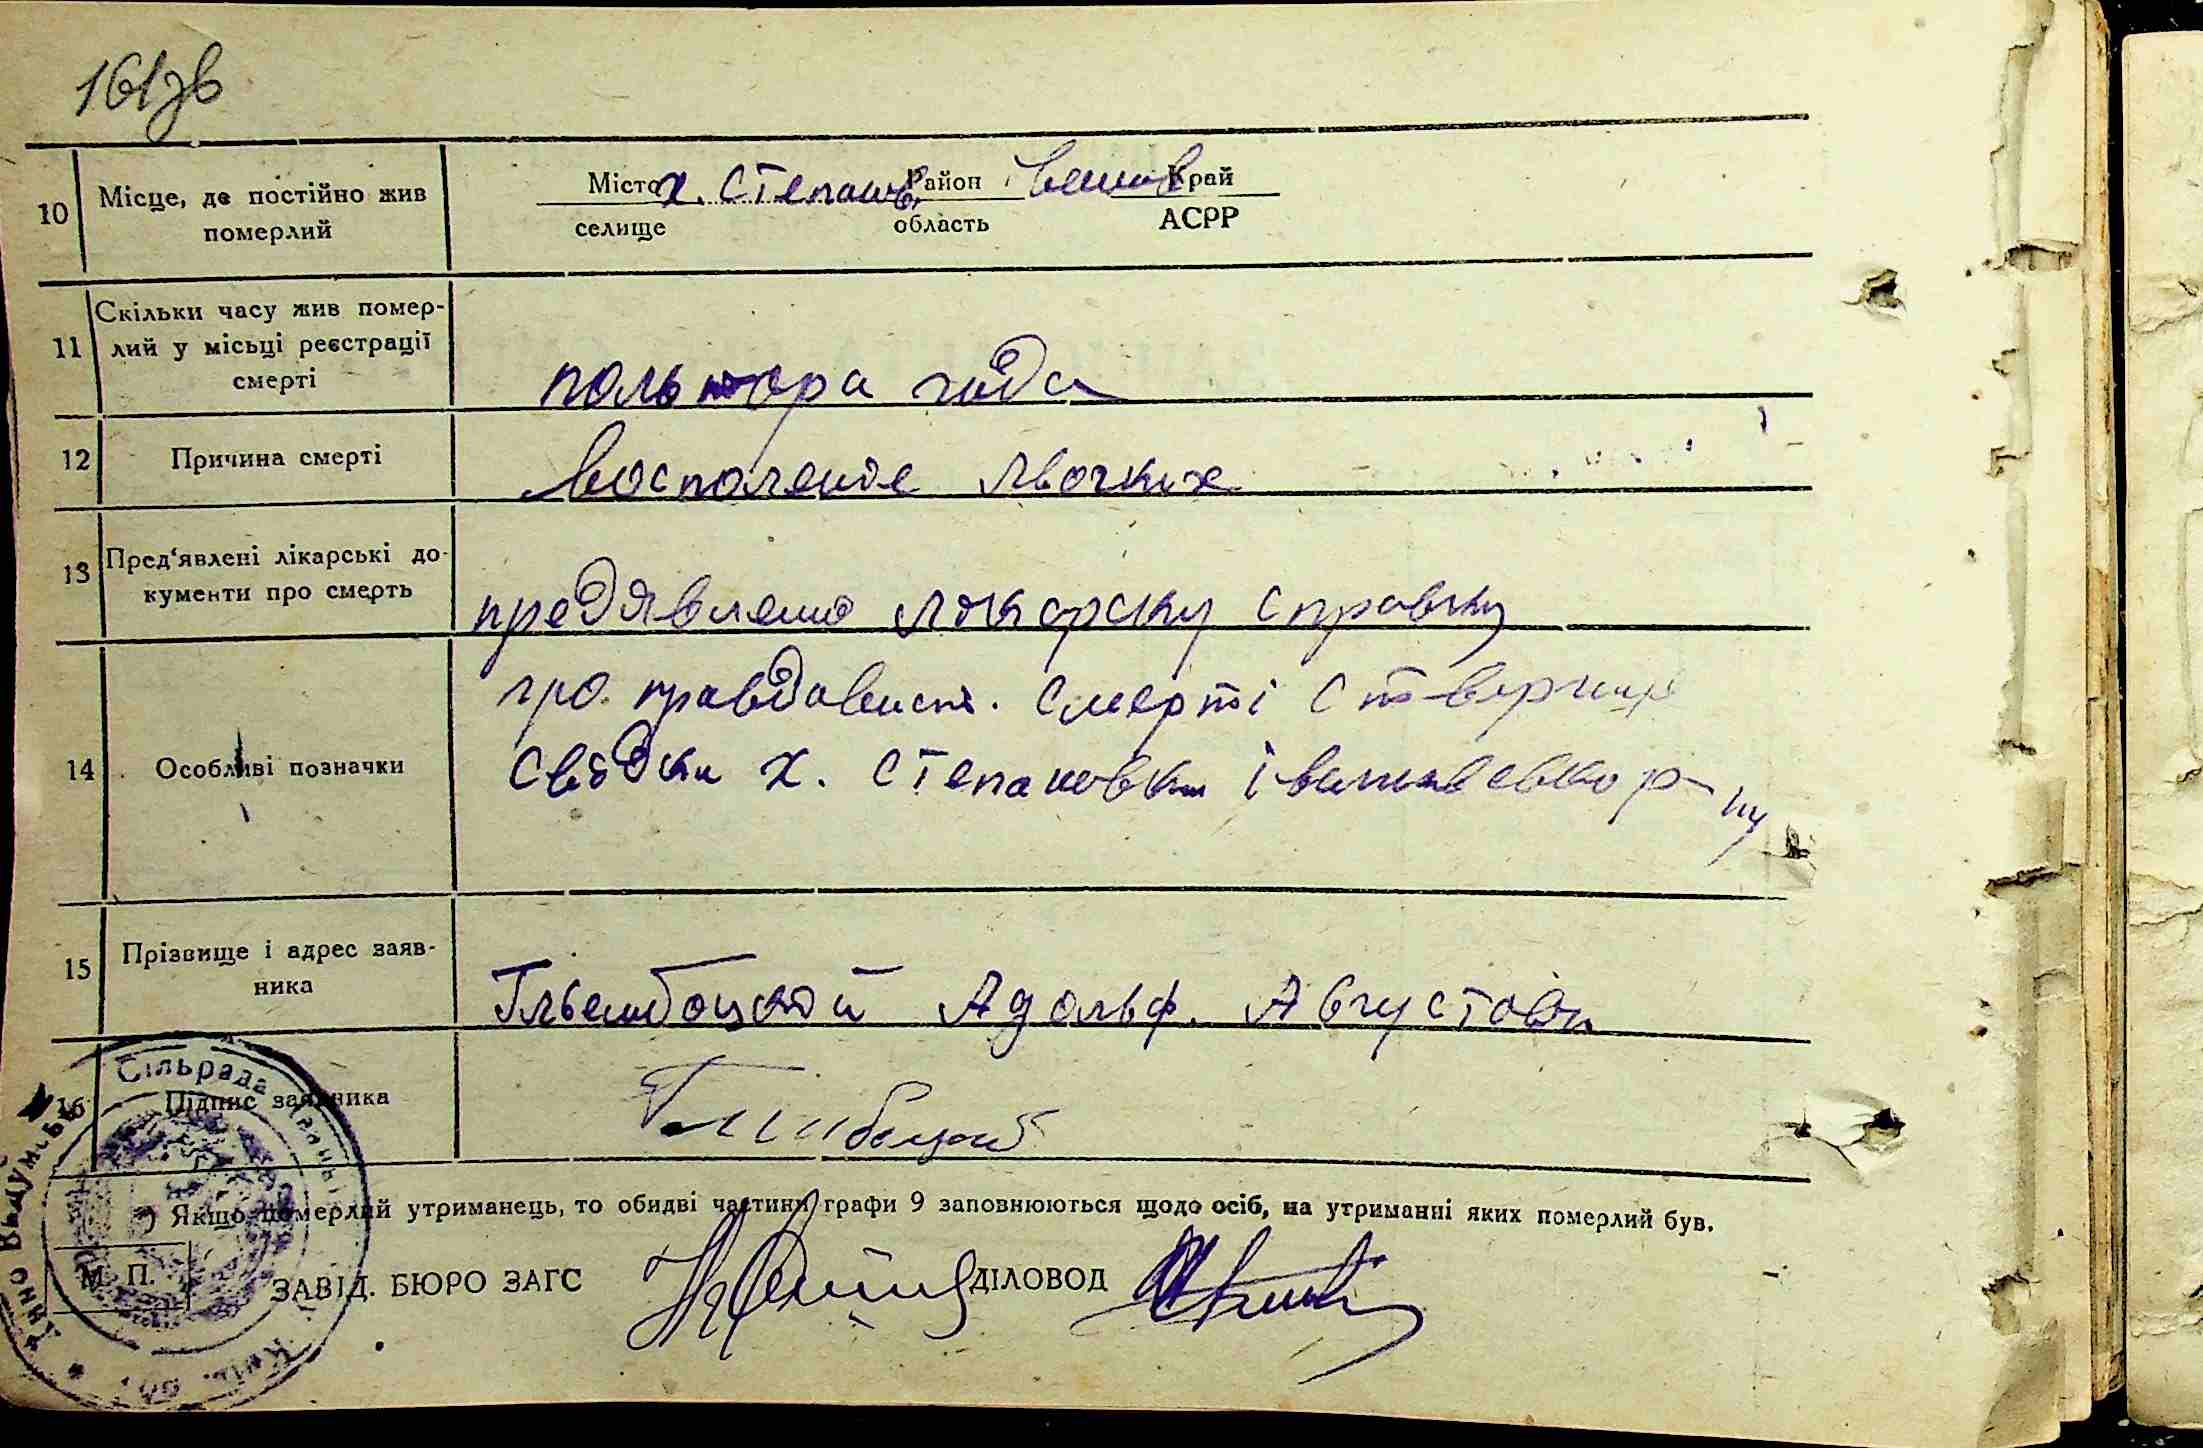 161зв
10 Місце, де постійно жив
померлий
Місто х. Степанів. Район Край
селище область АСРР
11 Скільки часу жив помер-
лий у місьці реєстрації
смерті
польтора года
12 Причина смерті
восполеніе льочких
13 Пред'явлені лікарські до-
кументи про смерть
предявлено лікарску справку
14 Особливі позначки
про. правдавист. смерті ствержує
свідки х. Степановки
15 Прізвище і адрес заяв-
ника
Гльембоцкой Адольф. Августовіч
16 Підпис заявника
Сільрада
) Якщо померлий утриманець, то обидві частини графи 9 заповнюються щодо осіб, на утриманні яких померлий був.
М. П.
ЗАВІД. БЮРО ЗАГС ДІЛОВОД